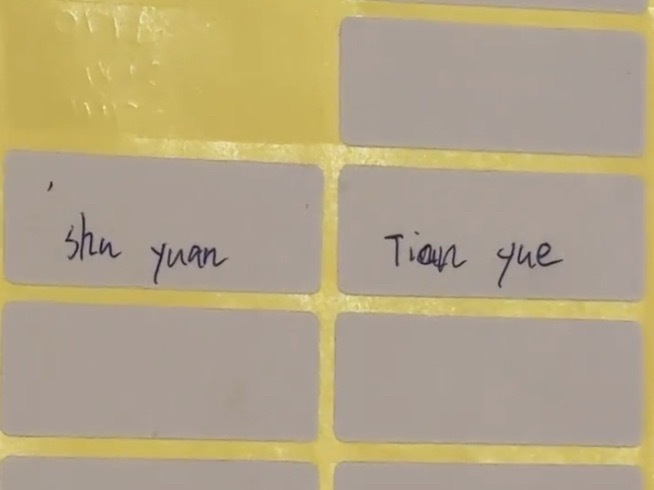 shu yuan
Tian yue